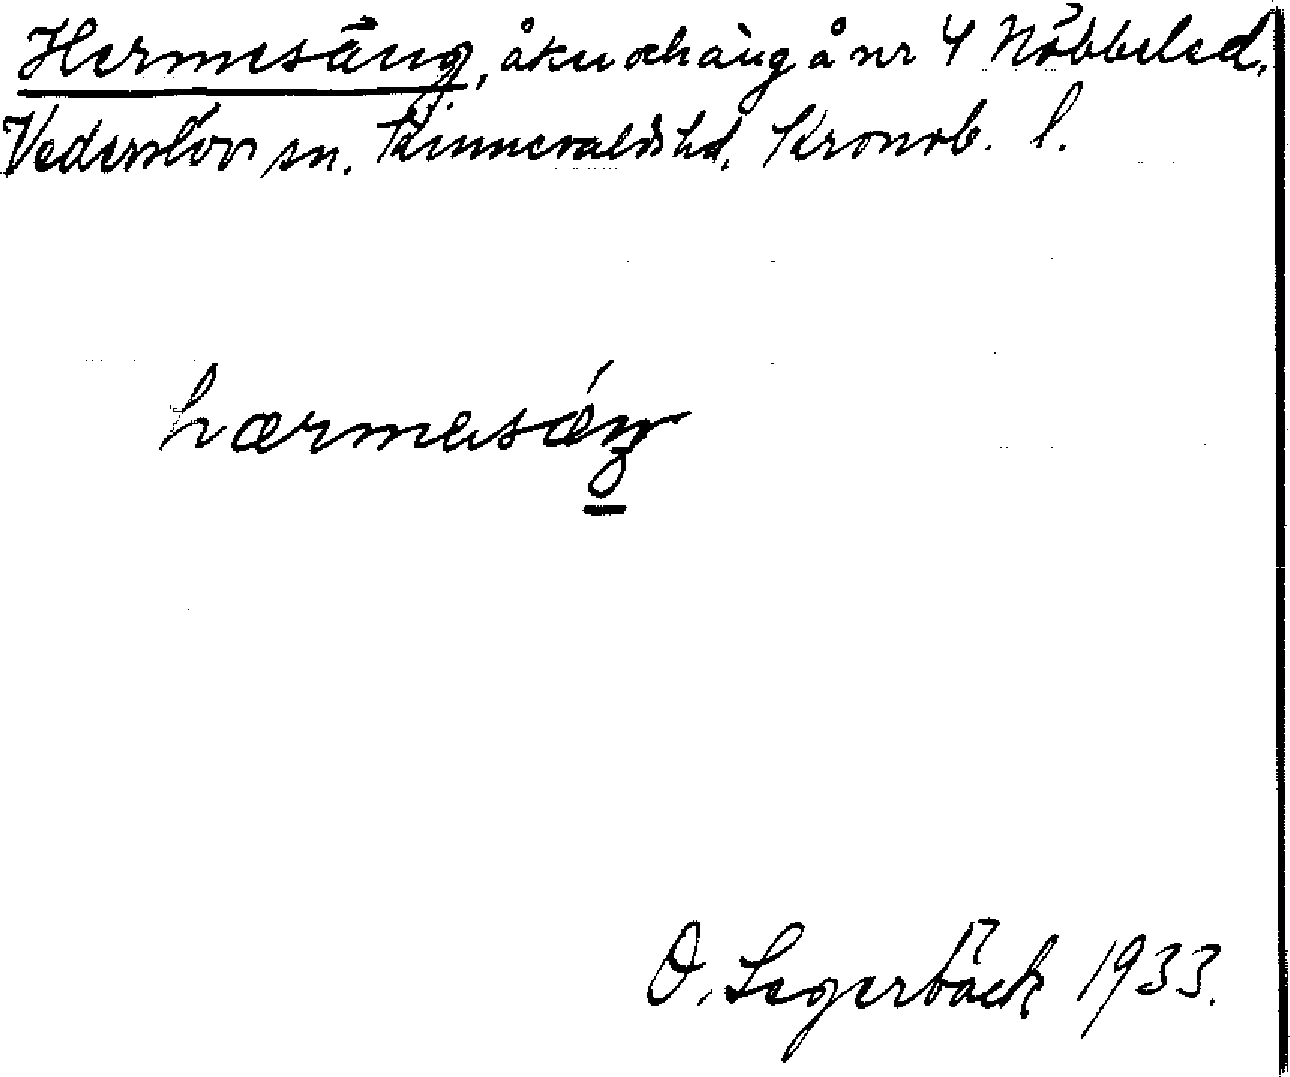 Hermesäng, åker och äng å nr 4 Nöbbeled,
Vederslöv sn. Kinnevalds hd. Kronob. l.
hærmesǽŋ
O. Segerbäck 1933.